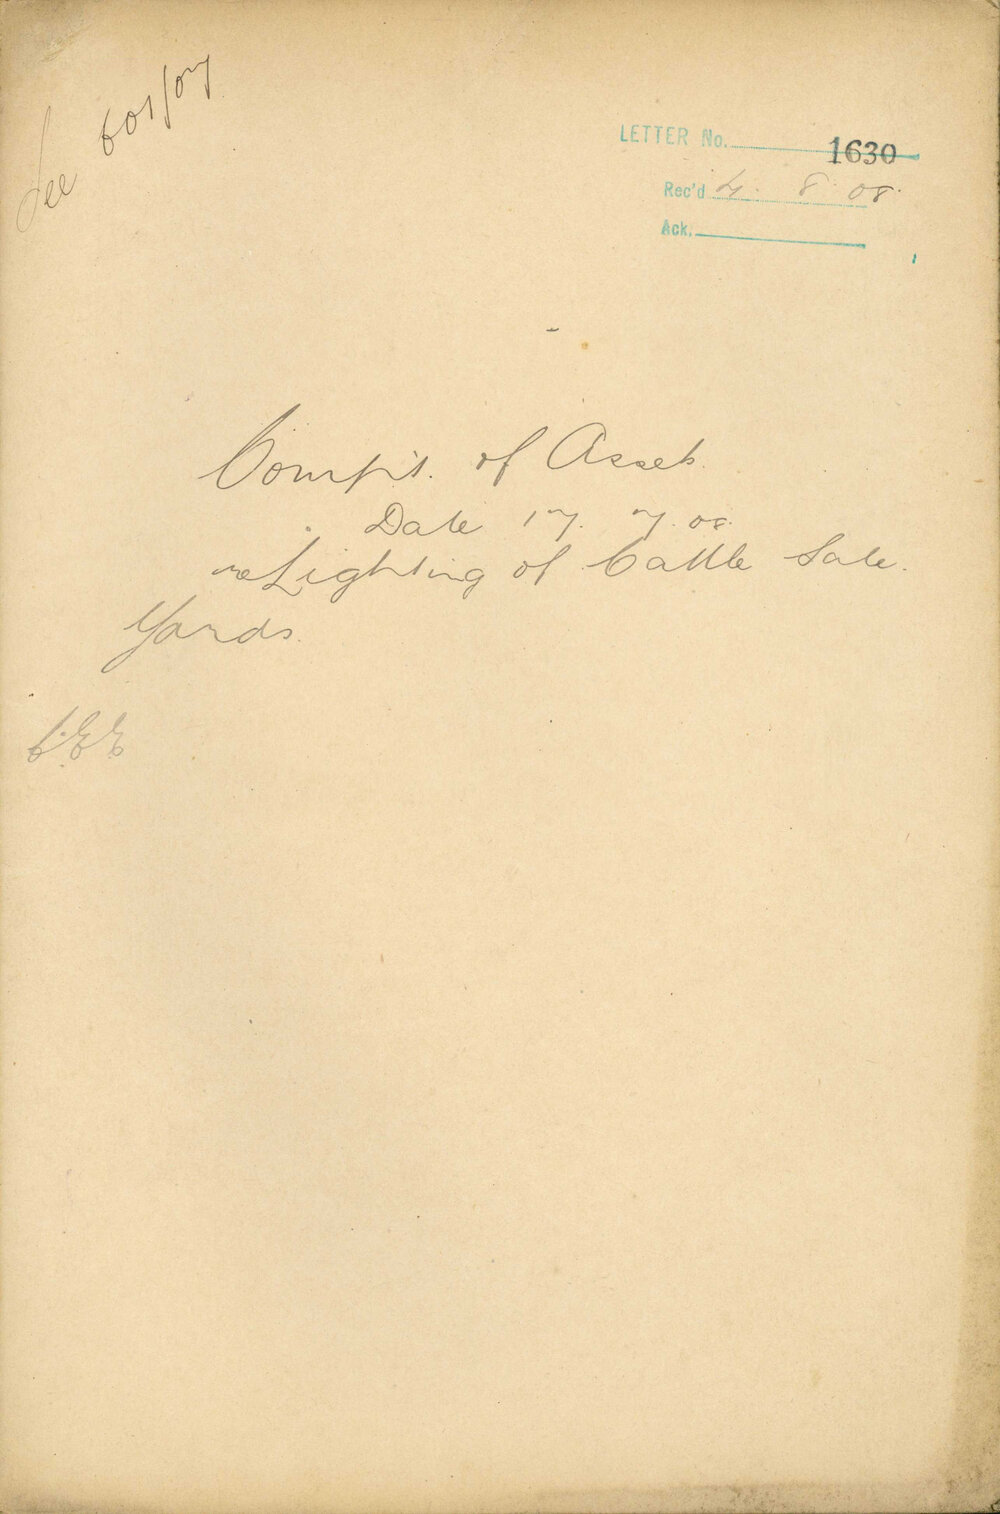 See 601/07
LETTER No. 1630
Rec'd 4. 8. 08.
Ack.
Comp't. of Assets.
Date 17. 7. 08.
re Lighting of Cattle Sale.
Yards.